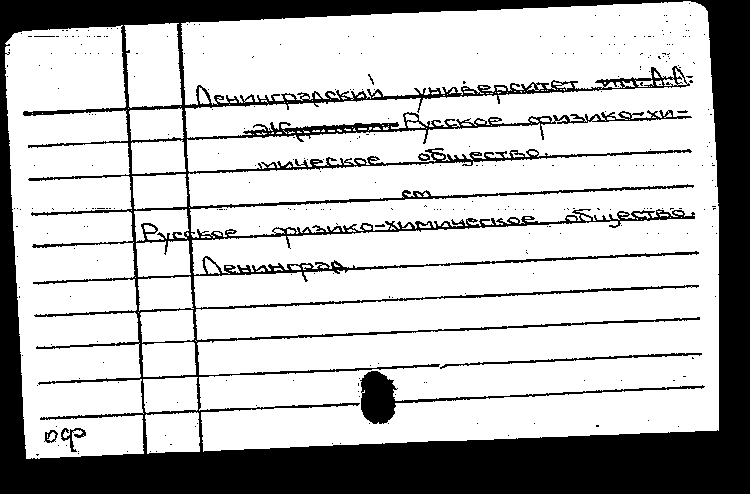 Ленинградский университет им. А.А.
Жданова. Русское физико-хи-
мическое общество.
см
Русское физико-химическое общество.
Ленинград.
ОФ